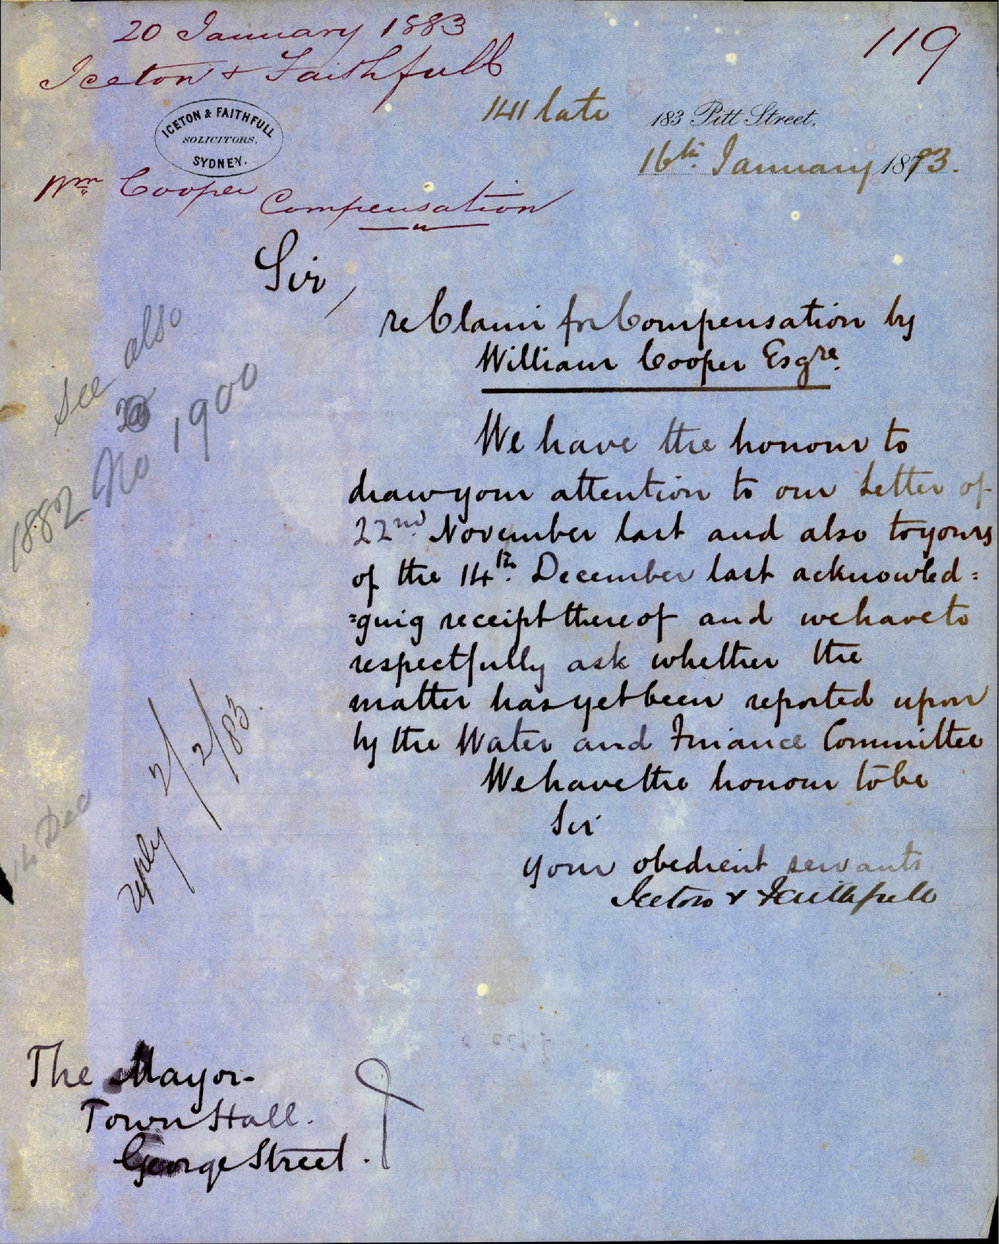 20 January 1883
119
Iceton & Faithfull
ICETON & FAITHFULL
SOLICITORS,
SYDNEY.
141 late
183 Pitt Street,
16th January 1883.
Wm Cooper
Compensation
Sir,
re Claim for Compensation by
William Cooper Esqre.
See also
1882 No 1900
We have the honour to
draw your attention to our Letter of
22nd November last and also to yours
of the 14th. December last acknowled=
=ging receipt thereof and we have to
respectfully ask whether the
matter has yet been reported upon
by the Water and Finance Committee
We have the honour to be
Sir
your obedient servants
Iceton & Faithfull
reply 2/2/83.
14 Dec
The Mayor
Town Hall.
George Street.